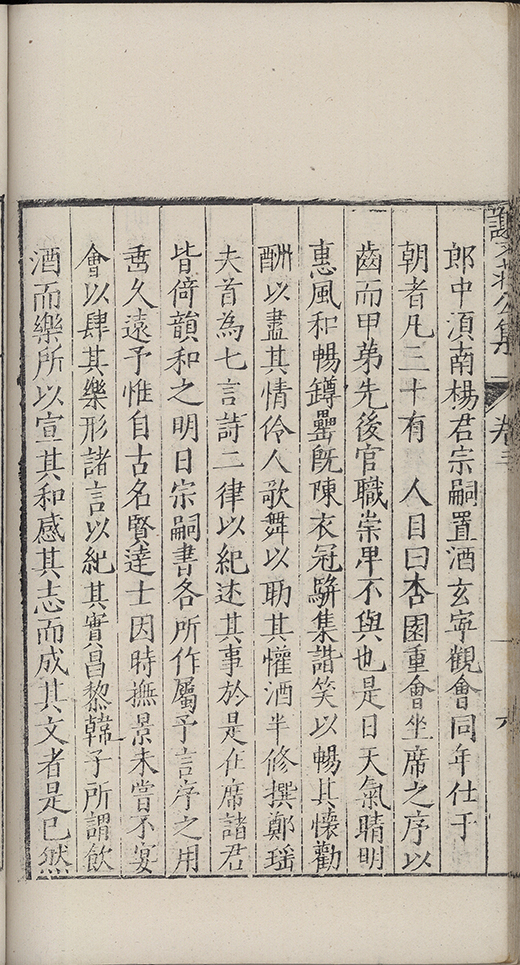 郎中湏南楊君宗嗣置酒玄寧觀會同年仕于
朝者凡三十有　人目曰杏園重會坐席之序以
齒而甲弟先後官職崇卑不與也是日天氣晴明
惠風和暢罇罍既陳衣冠駢集諧笑以暢其懷勸
酬以盡其情伶人歌舞以助其懽酒半修撰鄭瑶
夫首為七言詩二律以紀述其事於是在席諸君
皆倚韻和之明日宗嗣書各所作屬予言序之用
啚久遠予惟自古名賢達士因時撫景未嘗不宴
會以肆其樂形諸言以紀其實昌黎韓子所謂飲
酒而樂所以宣其和感其志而成其文者是已然
公集
卷三
六